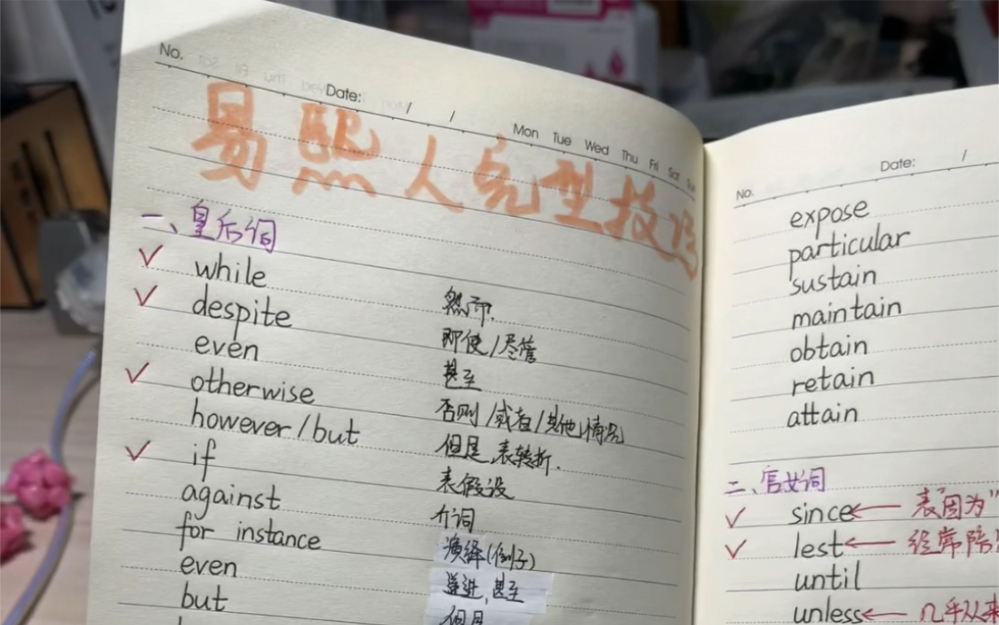 No.
Date: / /
Mon Tue Wed Thu Fri Sat Sun
易熙人完型技巧
一、皇后词
✓ while 然而.
✓ despite 即使/尽管
even 甚至
✓ otherwise 否则/或者/其他情况
however/but 但是,表转折.
✓ if 表假设
against 介词
for instance 演绎(例子)
even 递进,甚至
but 但是
No.
Date: /
expose
particular
sustain
maintain
obtain
retain
attain
二、宫女词
✓ since ← 表"因为"
✓ lest ← 经常陪
until
unless ← 几乎从来